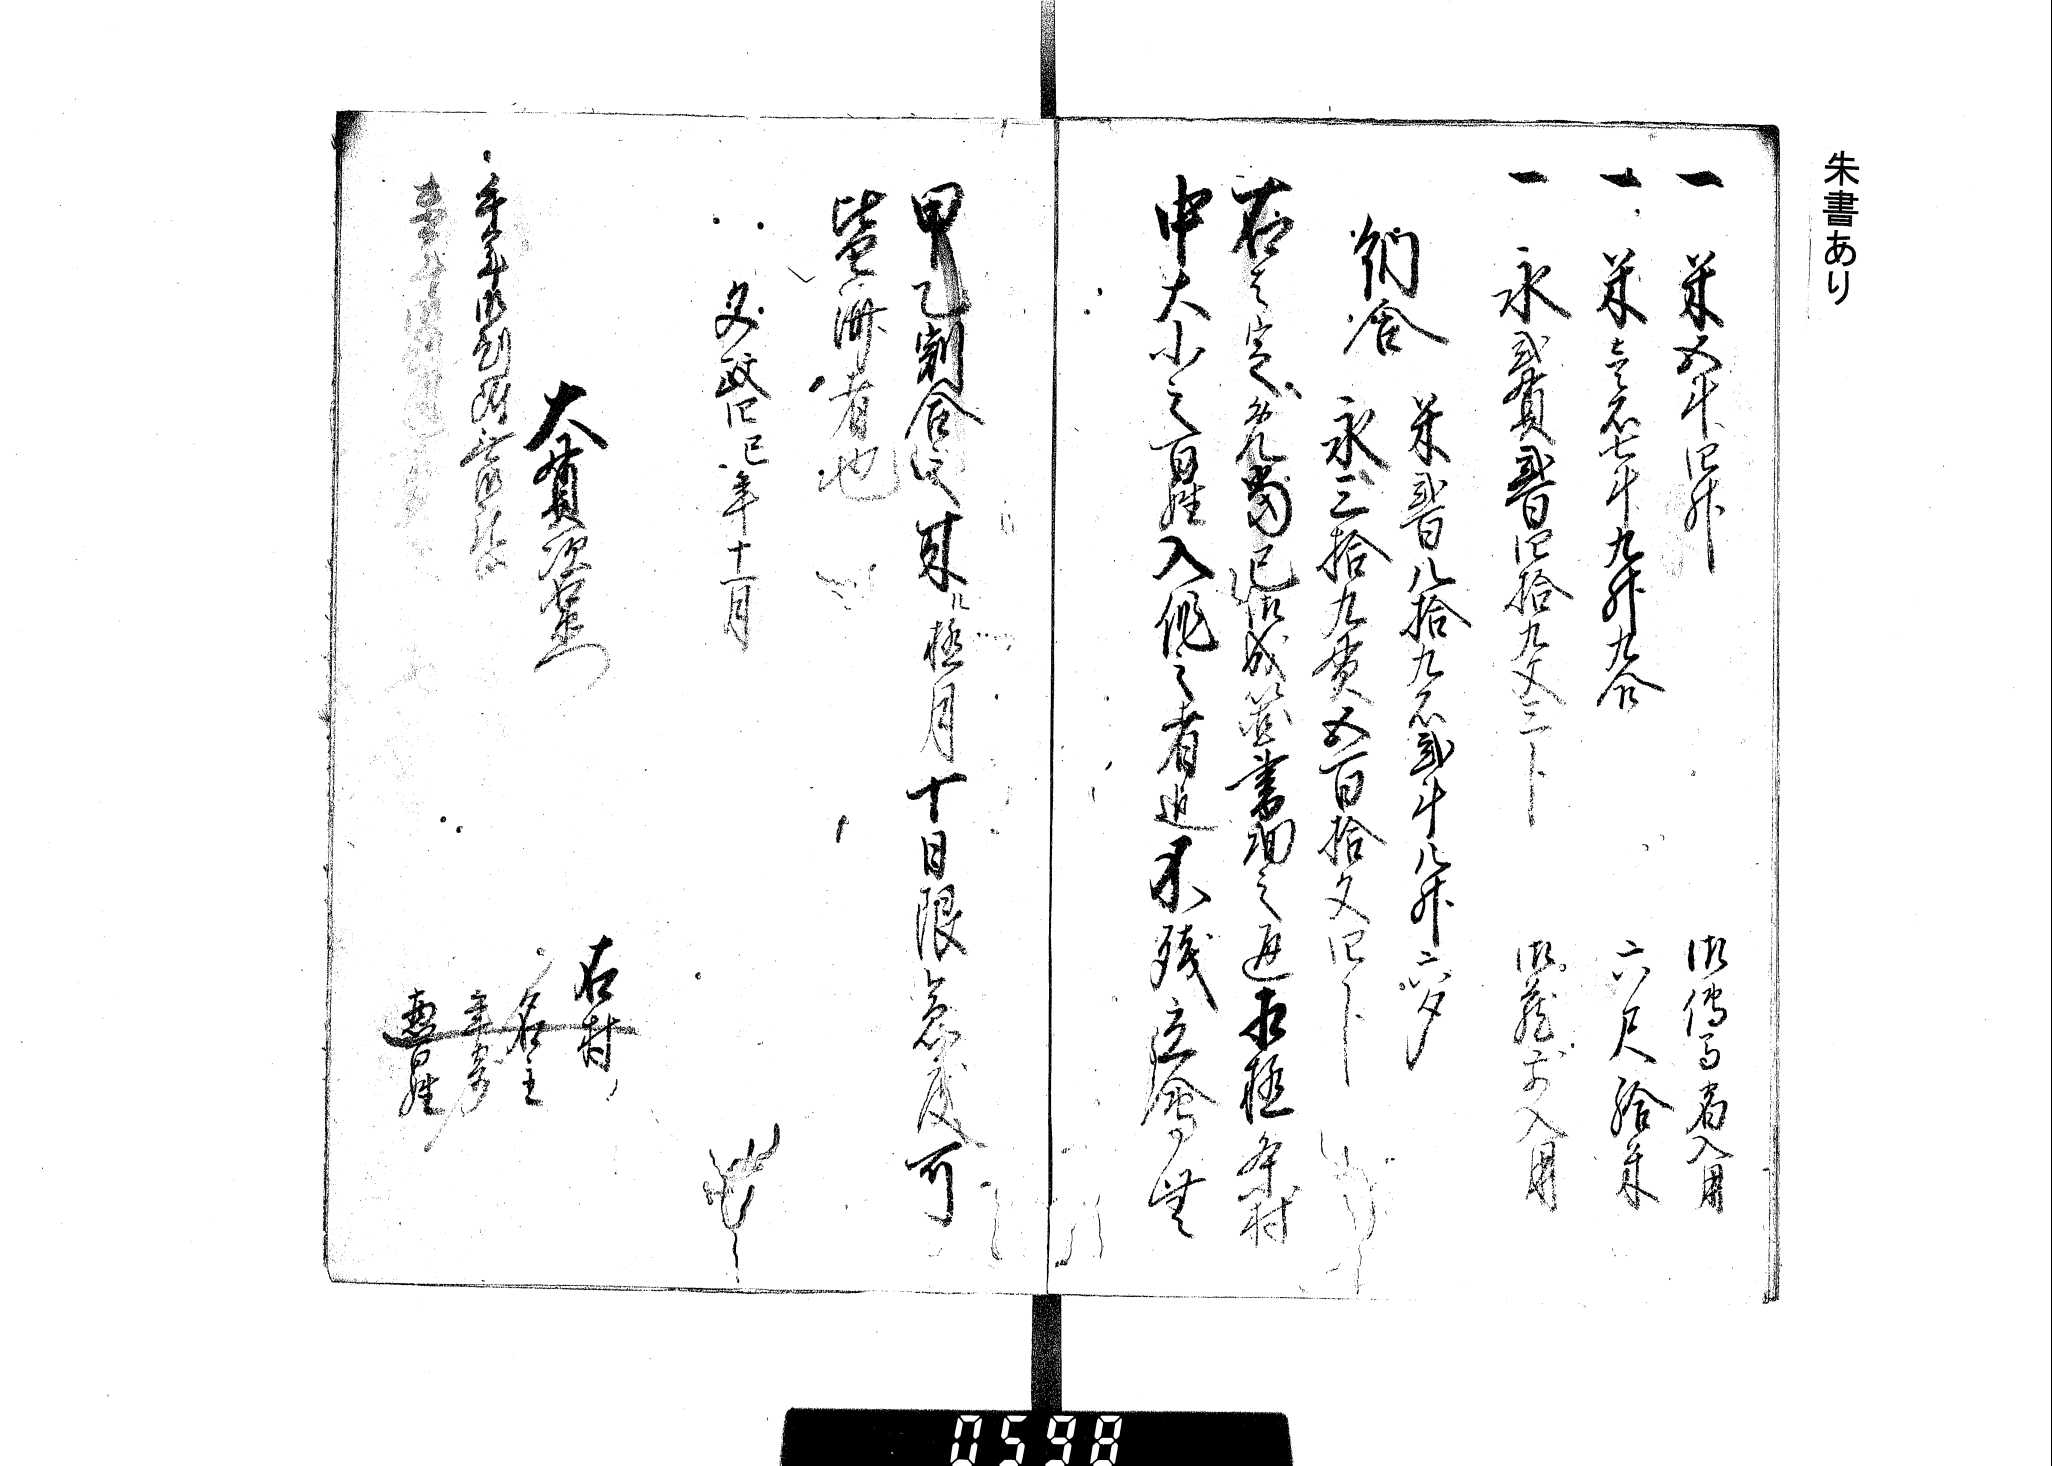 朱書あり
一 米五斗四升 御伝馬宿入用
一 米壱石七斗九升九合 六尺給米
一 永弐貫弐百四拾九文三卜 御蔵前入用
納合 米弐百八拾九石弐斗八升六夕
永三拾九貫五百拾文四卜
右者定免当巳御成箇書面之通相極条村
中大小之百姓入作之者迄不残立会無
甲乙割合之来ル極月十日限急度可
皆済者也
文政四巳年十一月
大貫次右衛門
右村
名主
年寄
惣百姓
0598